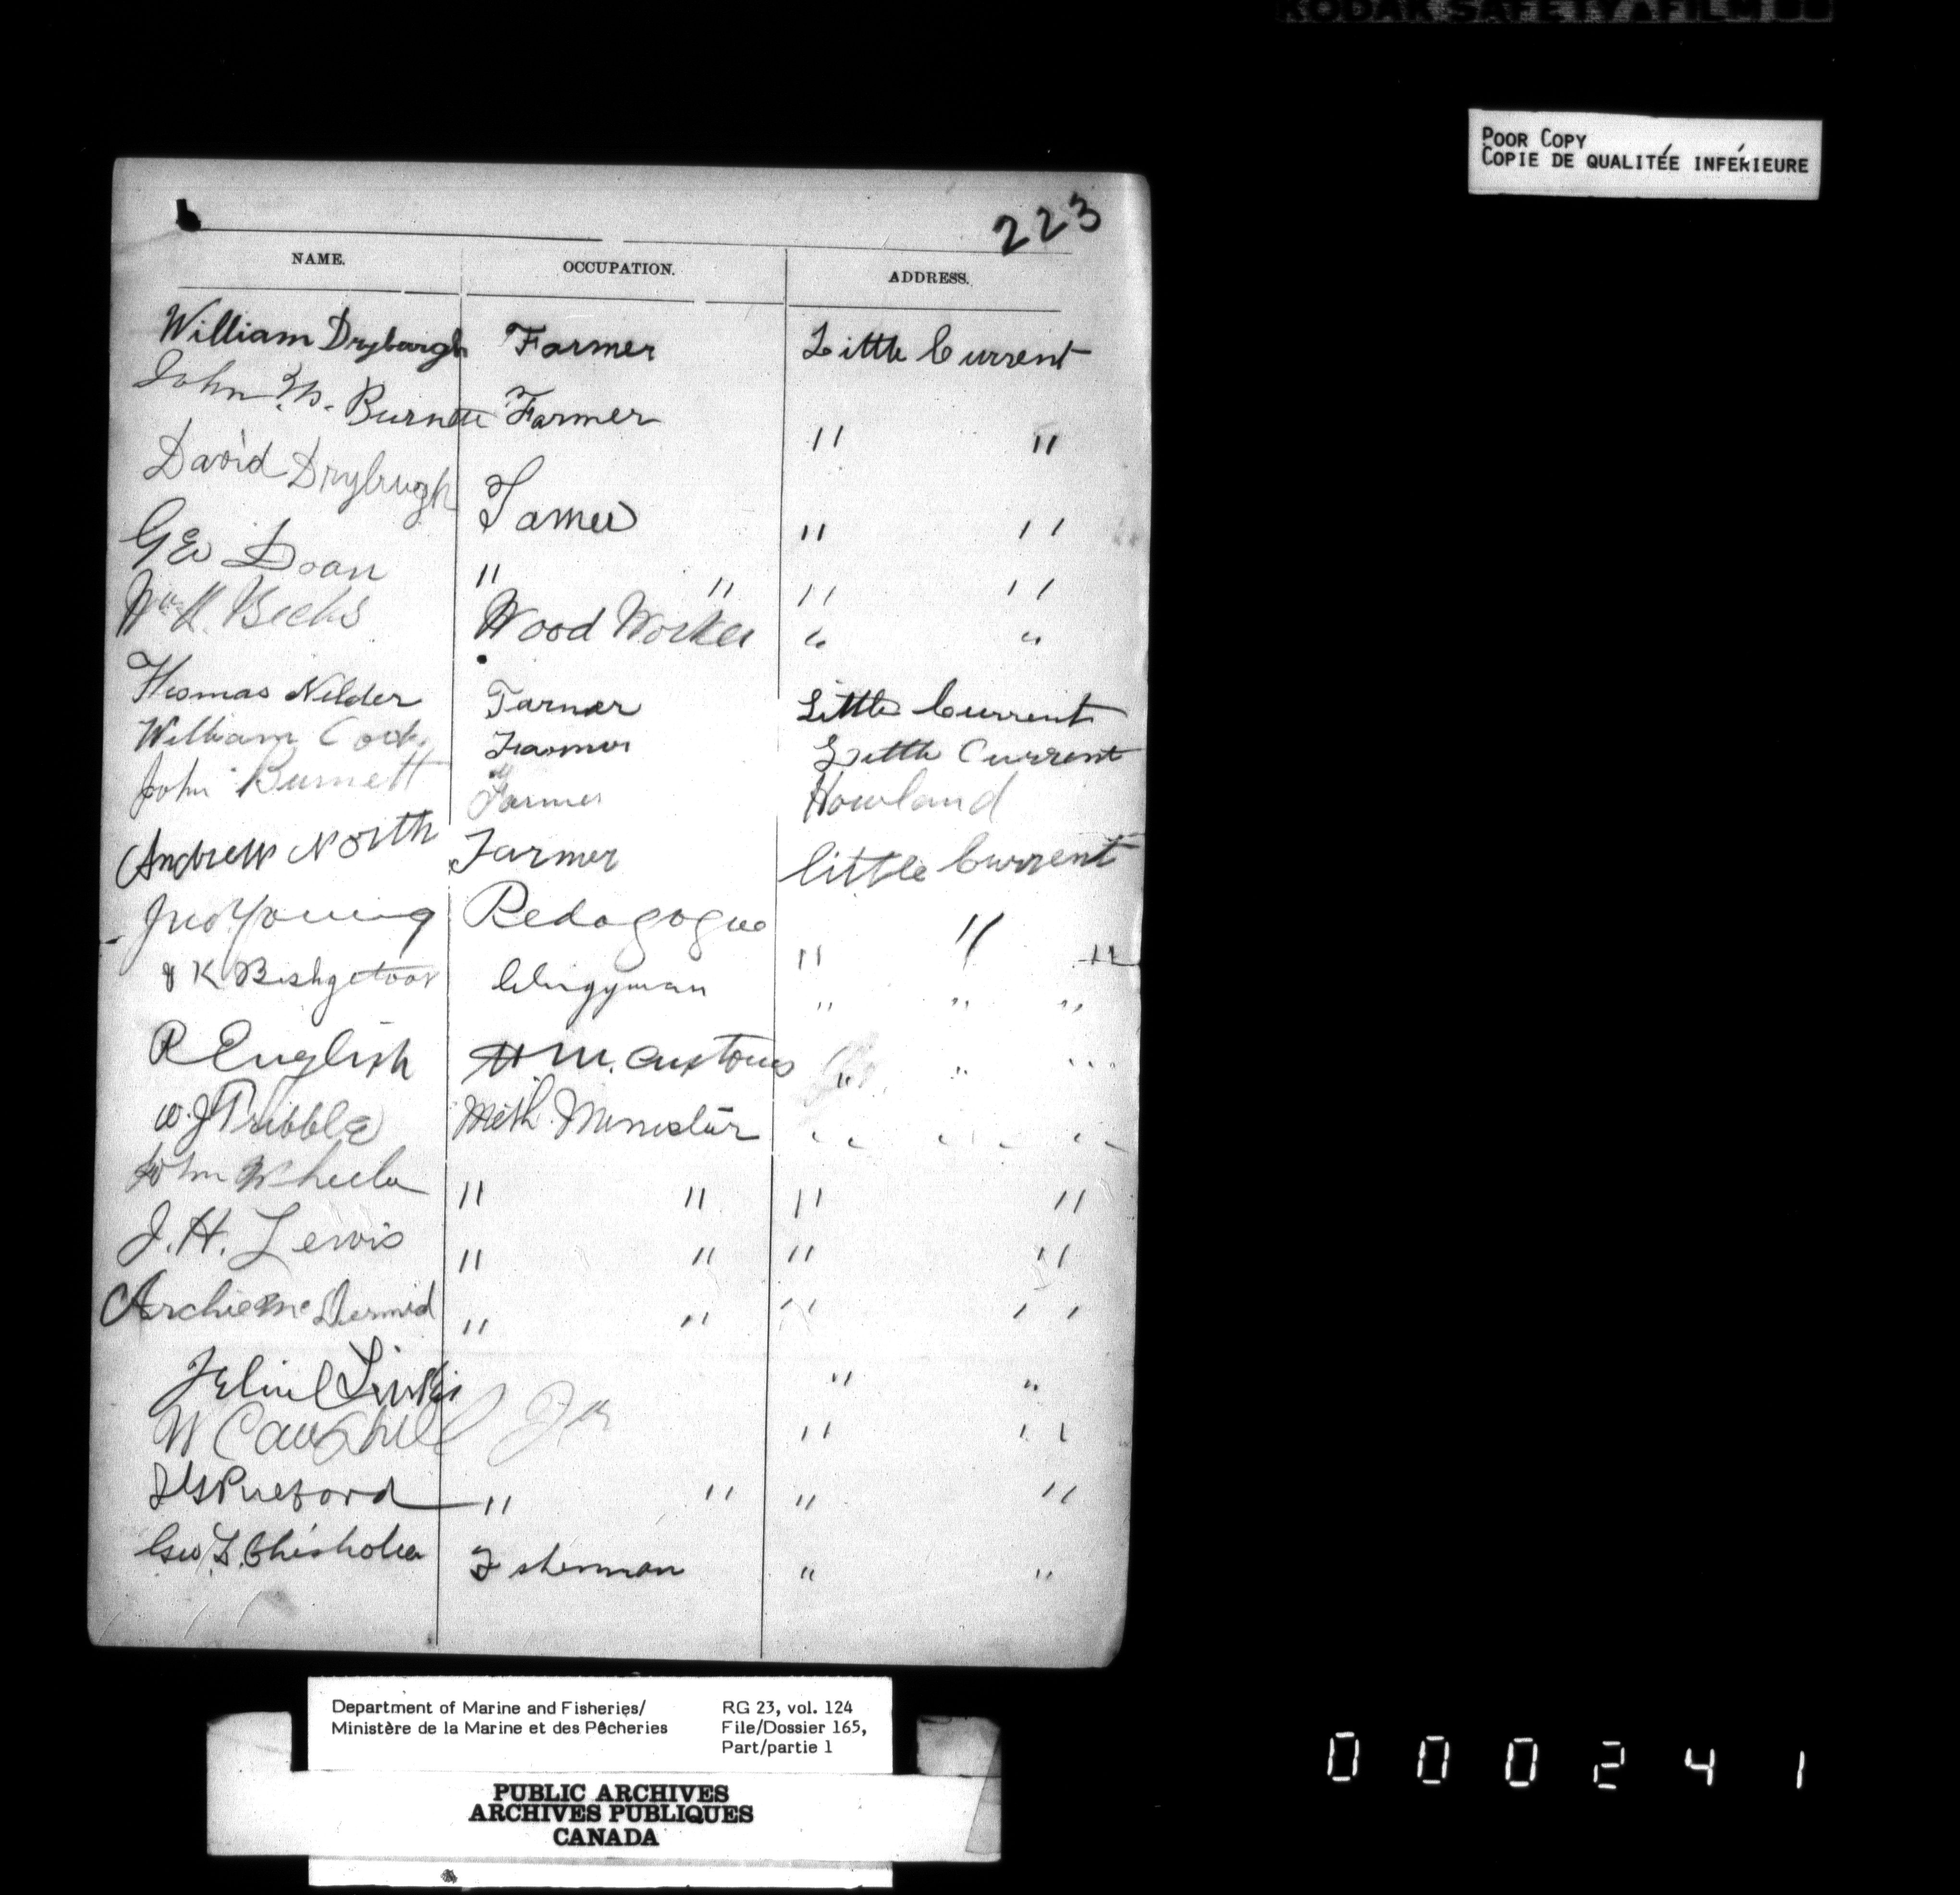 KODAK SAFETY FILM
POOR COPY
COPIE DE QUALITÉE INFÉRIEURE
223
NAME. OCCUPATION. ADDRESS.
William Drybargh Farmer Little Current
John W. Burnett Farmer " "
David Drybrugh Farmer " "
Geo Doan " " " "
Wm H. Becks Wood Worker " "
Thomas Nilder Farmer Little Current
William Cook Farmer Little Current
John Burnett Farmer Howland
Andrew North Farmer little Current
Jno Young Pedagogue " " "
K Clergyman " " "
R English H.M. Customs " " "
W. J. Tribble Meth. Minister " " "
John Wheeler " " " "
J. H. Lewis " " " "
Archie McDermid " " " "
" "
W Caughill " "
" " " "
Geo. L. Chisholm Fisherman " "
Department of Marine and Fisheries/
Ministère de la Marine et des Pêcheries
RG 23, vol. 124
File/Dossier 165,
Part/partie 1
PUBLIC ARCHIVES
ARCHIVES PUBLIQUES
CANADA
000241